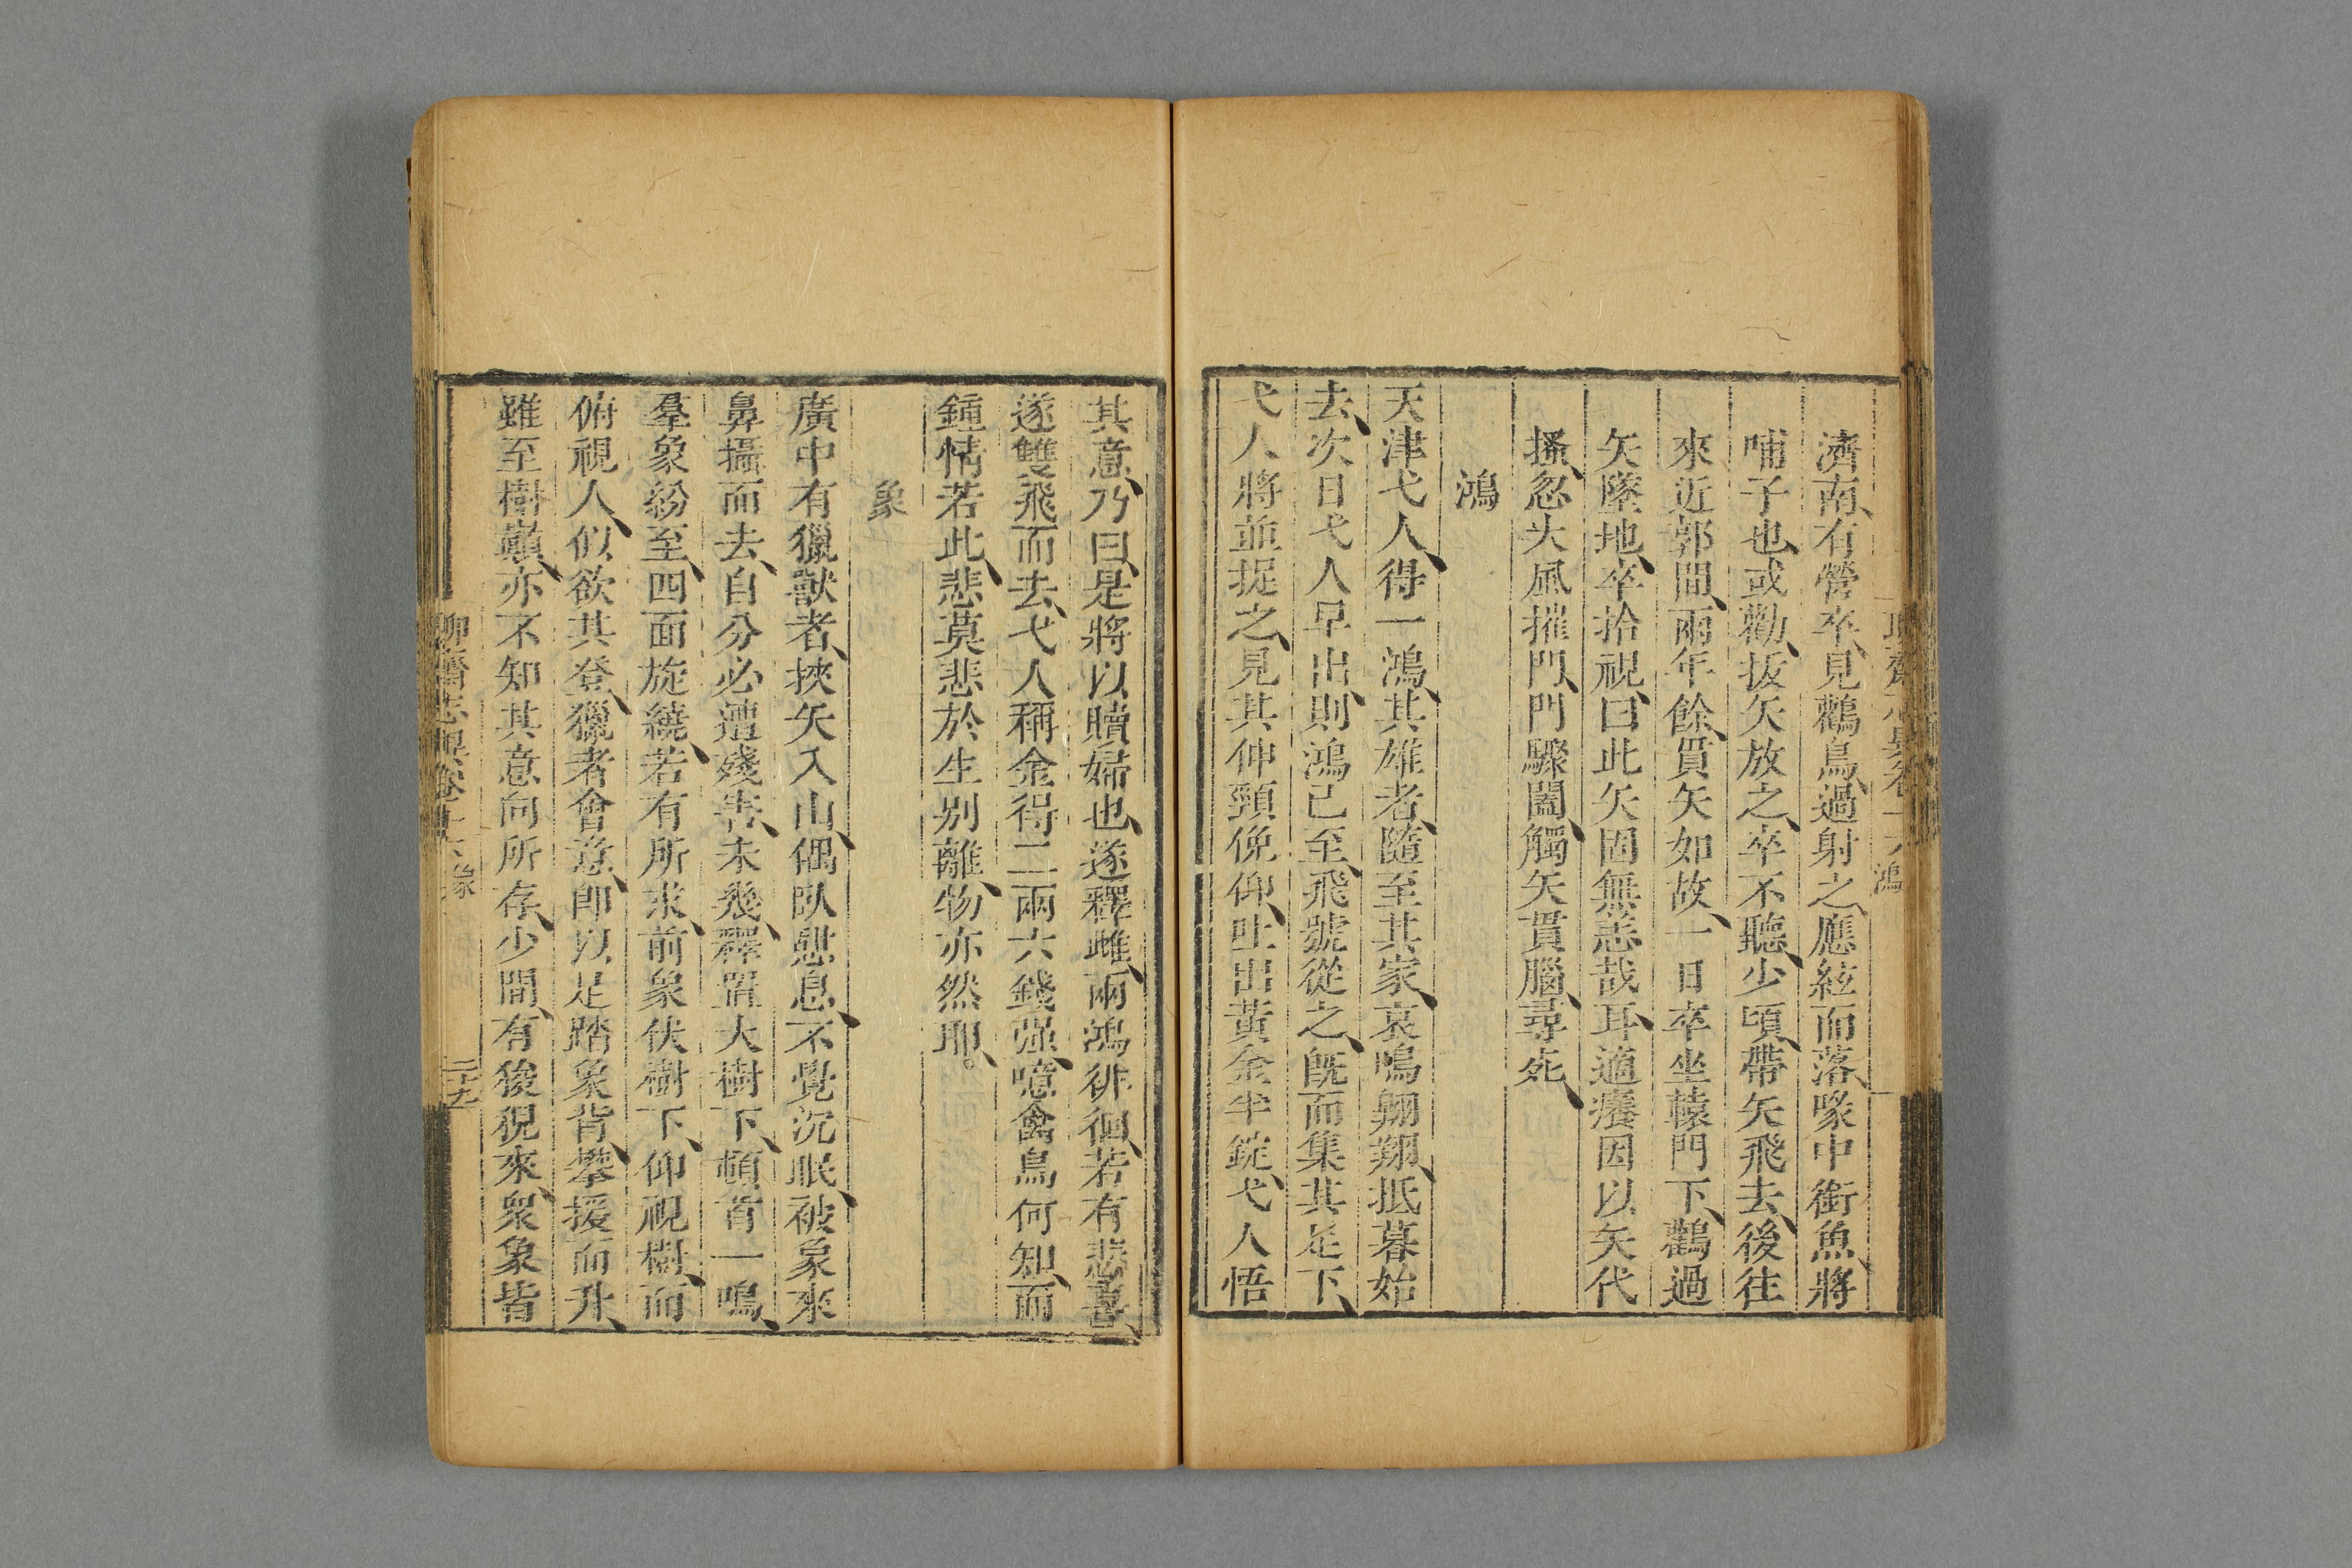 濟南、有營卒、見鸛鳥、過射之、應絃而落、喙中銜魚、將
哺子也、或勸、拔矢放之、卒不聽、少頃、帶矢飛去、後往
來、近郭間、兩年餘、貫矢如故、一日卒坐轅門下、鸛過
矢墜地、卒拾視、曰此矢固無恙哉、耳適癢、因以矢代
搔、忽大風摧門、門驟闔、觸矢貫腦、尋死、
鴻
天津弋人、得一鴻、其雄者、隨至其家、哀鳴翱翔、抵暮始
去、次日弋人早出、則鴻已至、飛號從之、既而集其足下、
弋人將並捉之、見其伸頸俛仰、吐出黃金半錠、弋人悟
其意、乃曰、是將以贖婦也、遂釋雌、兩鴻徘徊、若有悲喜、
遂雙飛而去、弋人稱金、得二兩六錢强、噫禽鳥何知、而
鍾情若此、悲莫悲於生別離、物亦然耶。
象
廣中有獵獸者、挾矢入山、偶臥憇息、不覺沉眠、被象來
鼻攝而去、自分必遭殘害、未幾、釋置大樹下、頓首一鳴、
羣象紛至、四面旋繞、若有所求、前象伏樹下、仰視樹、而
俯視人、似欲其登、獵者會意、卽以足踏象背、攀援而升、
雖至樹巔、亦不知其意向所存、少間、有狻猊來、衆象皆
聊齋志異卷十六 象 二十九